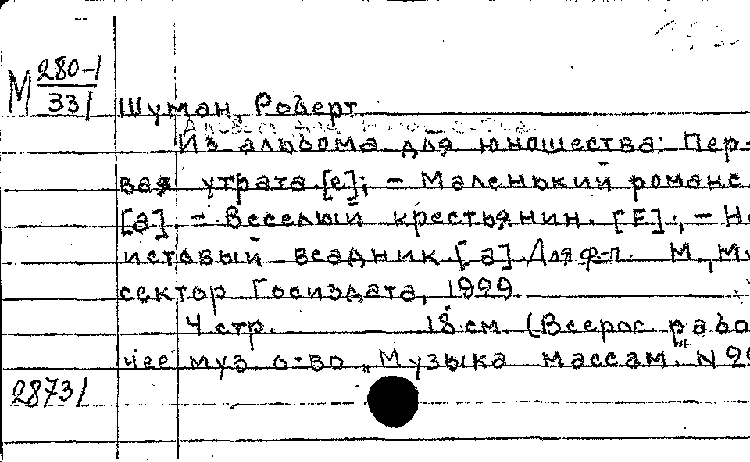 М 280-1
331
Шуман, Роберт
Из альбома для юношества: Пер-
вая утрата [e]; - Маленький романс
[a]. - Веселый крестьянин. [F]; - Не
истовый всадник [a] Для ф-п. М., Му
сектор Госиздата, 1929
4 стр. 18 см. (Всерос. рабо
чее муз. о-во „Музыка массам" N 29
28731